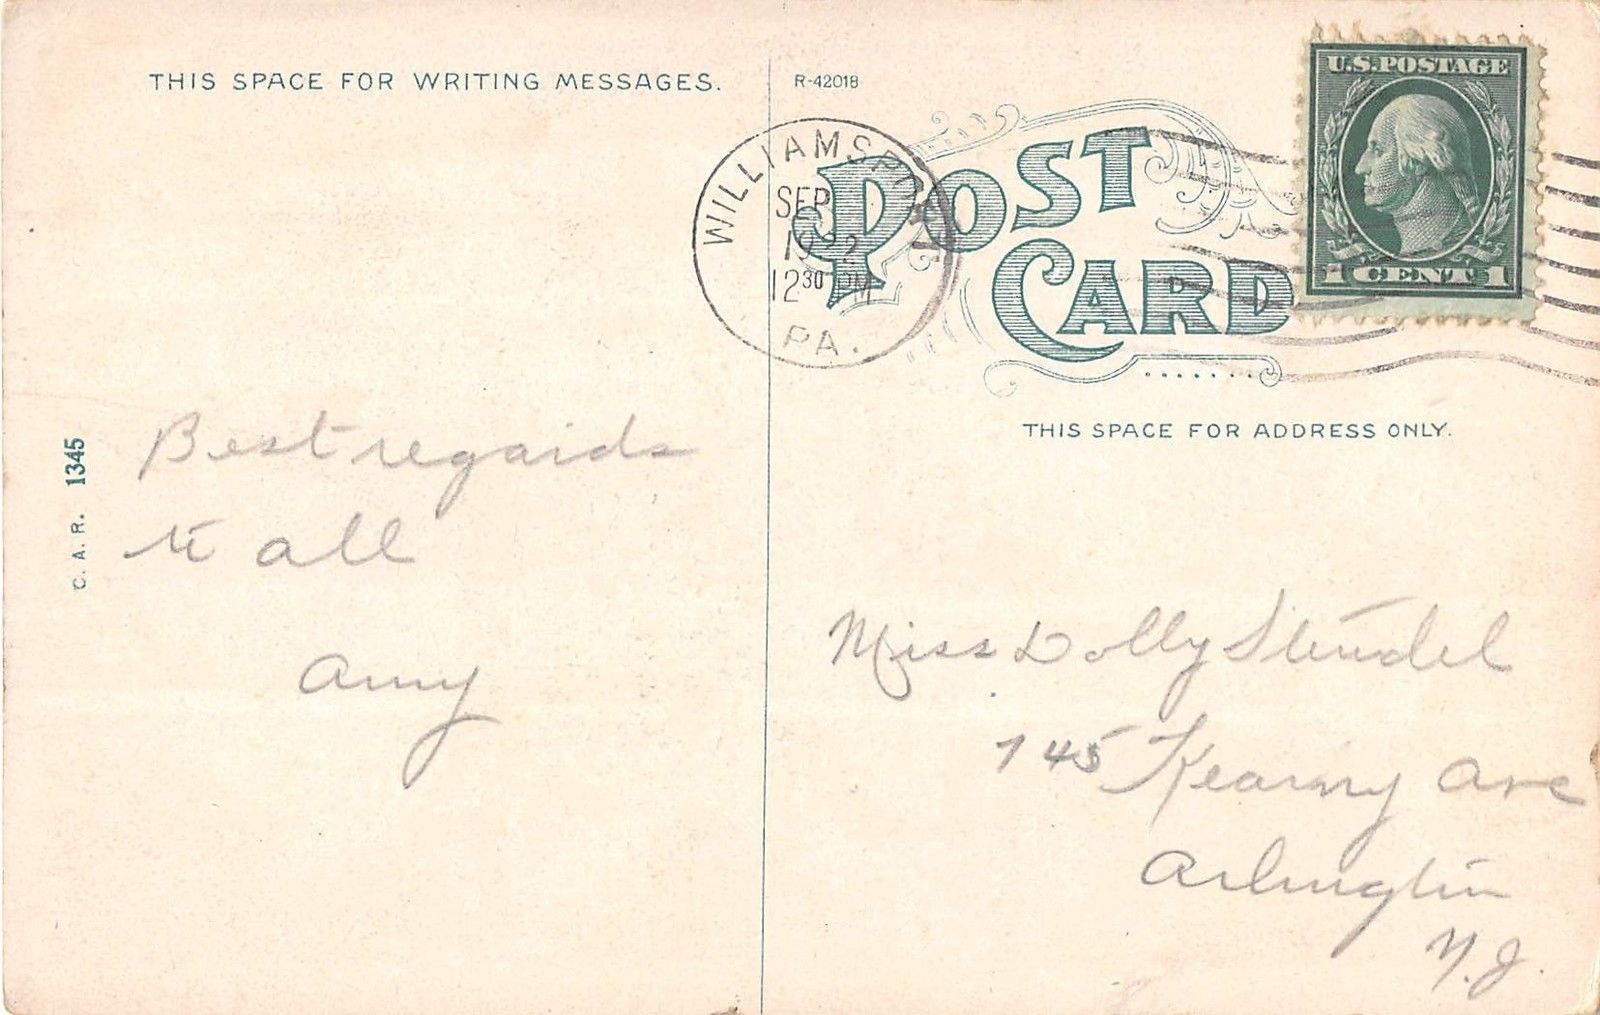 THIS SPACE FOR WRITING MESSAGES.
R-42018
POST
CARD
U.S. POSTAGE
1 CENT 1
WILLIAMSPORT
SEP
1922
12 30 PM
PA.
THIS SPACE FOR ADDRESS ONLY.
C. A. R. 1345
Best regards
to all
Amy
Miss Dolly
745 Kearny Ave
Arlington
N.J.